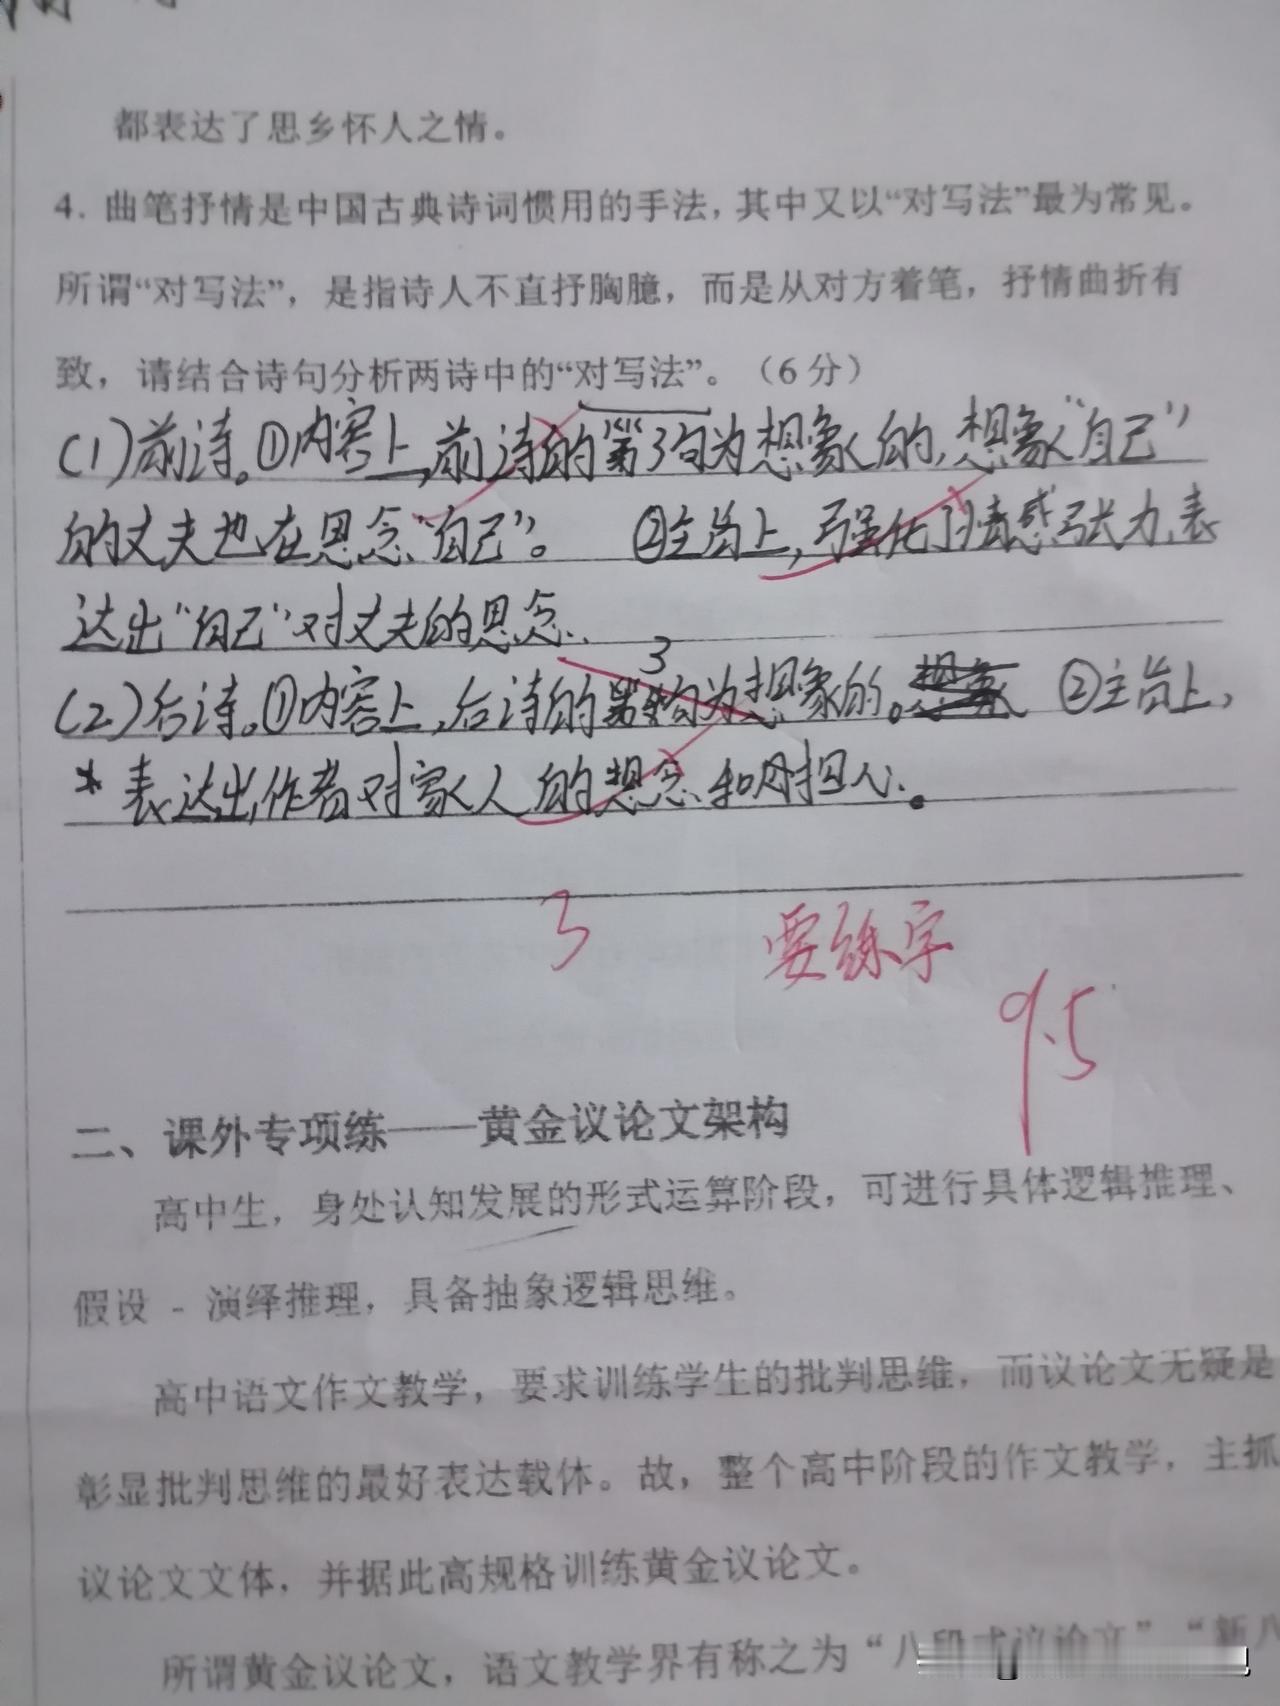 都表达了思乡怀人之情。
4. 曲笔抒情是中国古典诗词惯用的手法，其中又以“对写法”最为常见。
所谓“对写法”，是指诗人不直抒胸臆，而是从对方着笔，抒情曲折有
致，请结合诗句分析两诗中的“对写法”。（6分）
(1)前诗。①内容上，前诗的第3句为想象的，想象“自己”
的丈夫也在思念“自己”。 ②主旨上，强化了情感张力，表
达出“自己”对丈夫的思念.
3
(2)后诗。①内容上，后诗的第句为想象的。 ②主旨上，
* 表达出作者对家人的想念和担心.。
3 要练字
9.5
二、课外专项练——黄金议论文架构
高中生，身处认知发展的形式运算阶段，可进行具体逻辑推理、
假设 - 演绎推理，具备抽象逻辑思维。
高中语文作文教学，要求训练学生的批判思维，而议论文无疑是
彰显批判思维的最好表达载体。故，整个高中阶段的作文教学，主抓
议论文文体，并据此高规格训练黄金议论文。
所谓黄金议论文，语文教学界有称之为“八段式议论文”“新八